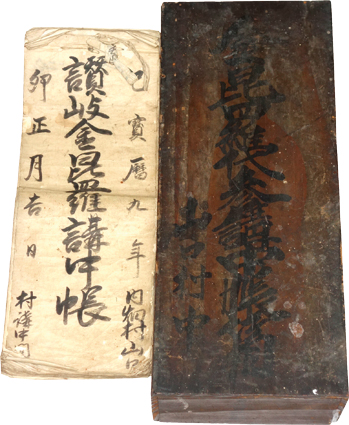 己寶暦九年
内畑村山口
讃岐金毘羅講中帳
卯正月吉日
村講中
毘羅代参講中帳
山口村中